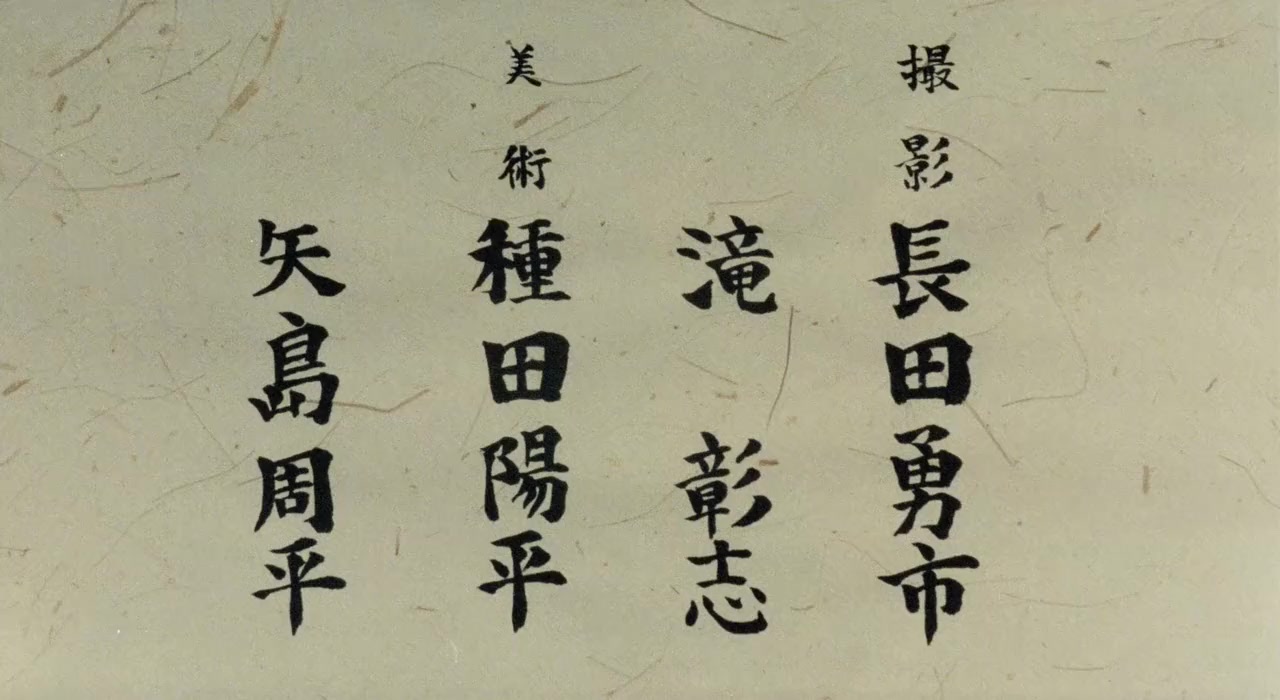 撮影 長田勇市
滝 彰志
美術 種田陽平
矢島周平